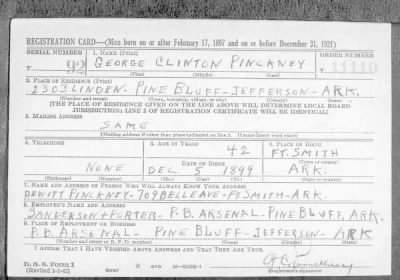 REGISTRATION CARD—(Men born on or after February 17, 1897 and on or before December 31, 1921)
SERIAL NUMBER 1. NAME (Print) ORDER NUMBER
T 92 GEORGE CLINTON PINCKNEY 11110
(First) (Middle) (Last)
2. PLACE OF RESIDENCE (Print)
2303 LINDEN- PINE BLUFF-JEFFERSON-ARK.
(Number and street) (Town, township, village, or city) (County) (State)
[THE PLACE OF RESIDENCE GIVEN ON THE LINE ABOVE WILL DETERMINE LOCAL BOARD
JURISDICTION; LINE 2 OF REGISTRATION CERTIFICATE WILL BE IDENTICAL]
3. MAILING ADDRESS
SAME
(Mailing address if other than place indicated on line 2. If same insert word same)
4. TELEPHONE 5. AGE IN YEARS 6. PLACE OF BIRTH
42 FT. SMITH
DATE OF BIRTH (Town or county)
NONE DEC 5 1899 ARK.
(Exchange) (Number) (Mo.) (Day) (Yr.) (State or country)
7. NAME AND ADDRESS OF PERSON WHO WILL ALWAYS KNOW YOUR ADDRESS
DEWITT PINCKNEY-709 BELLEAVE-FT.SMITH-ARK.
8. EMPLOYER'S NAME AND ADDRESS
SANDERSON & PORTER- P.B. ARSENAL-PINE BLUFF, ARK.
9. PLACE OF EMPLOYMENT OR BUSINESS
P.B. ARSENAL - PINE BLUFF-JEFFERSON-ARK
(Number and street or R. F. D. number) (Town) (County) (State)
I AFFIRM THAT I HAVE VERIFIED ABOVE ANSWERS AND THAT THEY ARE TRUE.
D. S. S. Form 1
(Revised 1-1-42) (over) 16—21630-1 (Registrant's signature)